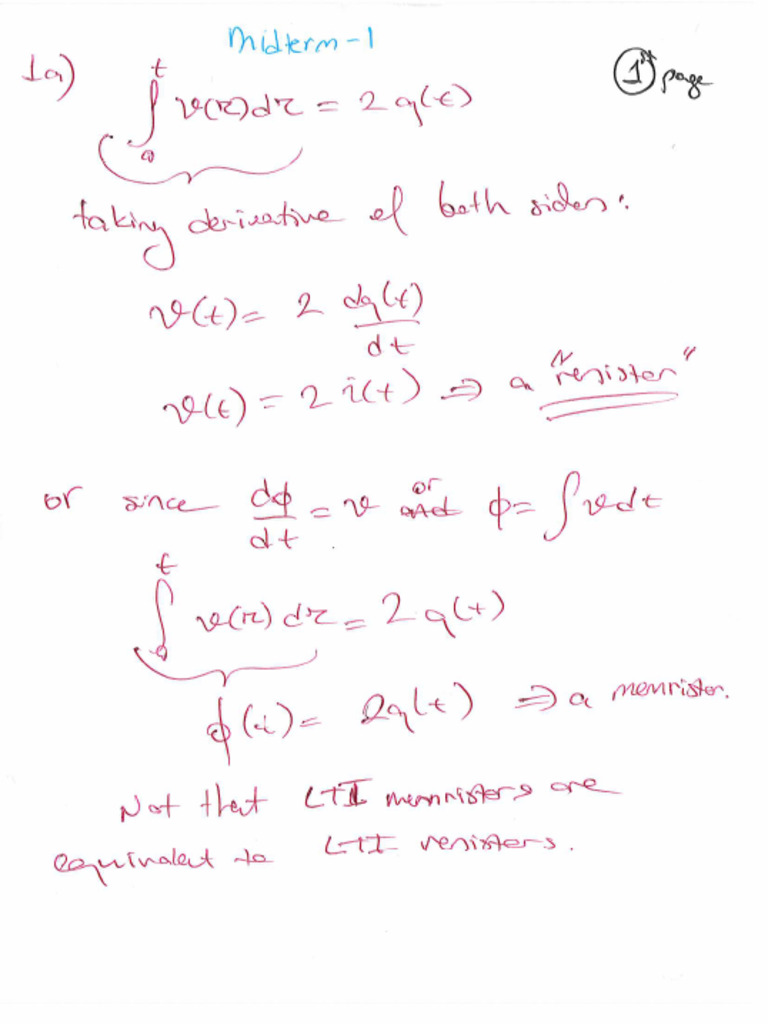 Midterm-1
1st page
1a) ∫₀ᵗ v(τ)dτ = 2q(t)
taking derivative of both sides:
v(t) = 2 dq(t)/dt
v(t) = 2 i(t) ⇒ a "resistor"
or since dϕ/dt = v or ϕ = ∫vdt
∫₀ᵗ v(τ)dτ = 2q(t)
ϕ(t) = 2q(t) ⇒ a memristor.
Not that LTI memristors are
equivalent to LTI resistors.